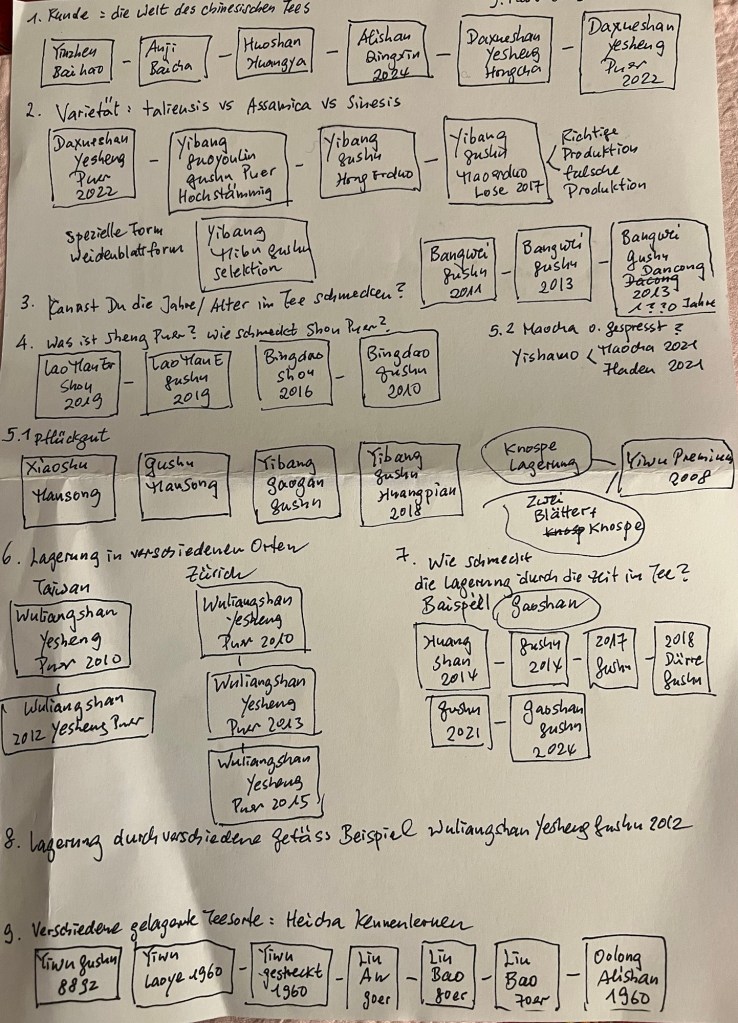 1. Runde : die Welt des chinesischen Tees
Yinzhen
Baihao
Anji
Baicha
Huoshan
Huangya
Alishan
Qingxin
2024
Daxueshan
Yesheng
Hongcha
Daxueshan
Yesheng
Puer
2022
2. Varietät : taliensis vs Assamica vs Sinesis
Daxueshan
Yesheng
Puer
2022
Yibang
guoyoulin
gushu Puer
Hochstämmig
Yibang
gushu
Hong Erduo
Yibang
gushu
Maoerduo
Lose 2017
Richtige
Produktion
falsche
Produktion
Spezielle Form
Weidenblattform
Yibang
gushu
selektion
Bangwei
gushu
2011
Bangwei
gushu
2013
Bangwei
gushu
Dancong
Dacong
2013
1??0 Jahre
3. Kannst Du die Jahre/Alter im Tee schmecken?
4. Was ist Sheng Puer? Wie schmeckt Shou Puer?
Lao Man Er
Shou
2019
Lao Man E
gushu
2019
Bingdao
Shou
2016
Bingdao
gushu
2010
5.2 Maocha o. gepresst?
Yishanmo
Maocha 2021
Fladen 2021
5.1 Pflückgut
Xiaoshu
Mansong
Gushu
Mansong
Yibang
gaogan
gushu
Yibang
gushu
Huangpian
2018
Knospe
Lagerung
Zwei
Blätter +
Knosp Knospe
Yiwu Premium
2008
6. Lagerung in verschiedenen Orten
Taiwan
Wuliangshan
Yesheng
Puer 2010
Wuliangshan
2012 Yesheng Puer
Zürich
Wuliangshan
Yesheng
Puer 2010
Wuliangshan
Yesheng
Puer 2013
Wuliangshan
Yesheng
Puer 2015
7. Wie schmeckt
die Lagerung durch die Zeit im Tee?
Beispiel gaoshan
Huang
Shan
2014
gushu
2014
2017
gushu
2018
Dürre
gushu
gushu
2021
gaoshan
gushu
2024
8. Lagerung durch verschiedene Getäss Beispiel Wuliangshan Yesheng Gushu 2012
9. Verschiedene gelagerte Teesorte : Heicha kennenlernen
Yiwu gushu
8892
Yiwu
Laoye 1960
Yiwu
gestreckt
1960
Liu
An
90er
Liu
Bao
80er
Liu
Bao
70er
Oolong
Alishan
1960